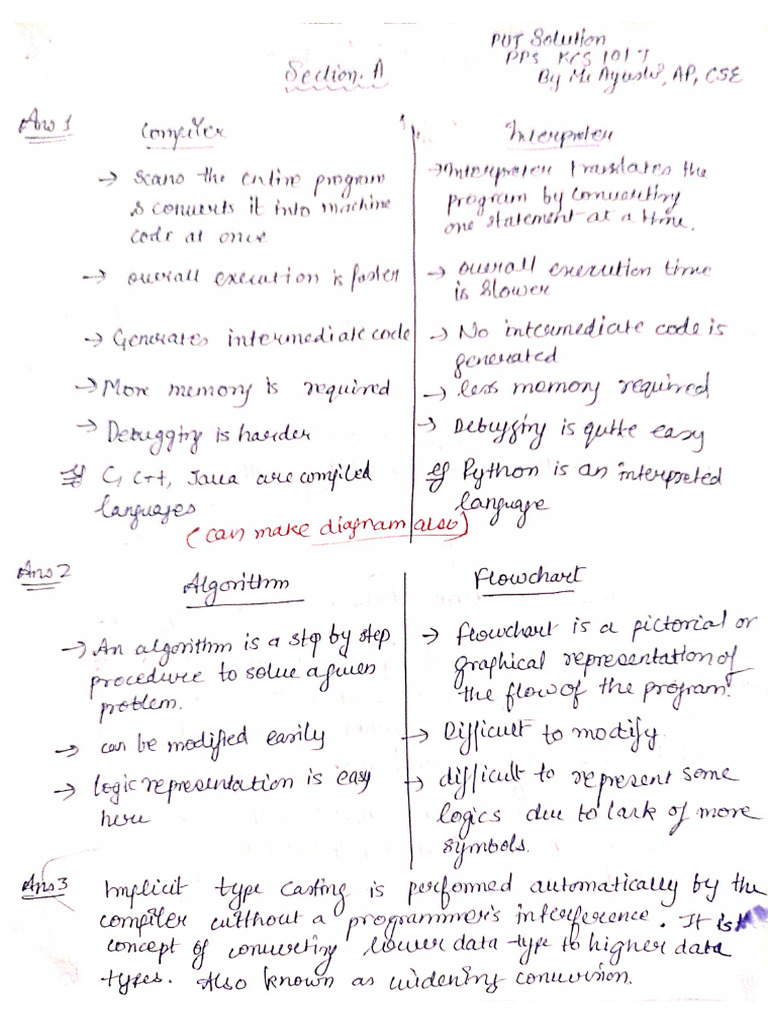 PUT Solution
PPS KCS 101T
By Mr Ayushi, AP, CSE
Section. A
Ans 1
Compiler
→ Scans the entire program
& converts it into machine
code at once
→ overall execution is faster
→ Generates intermediate code
→ More memory is required
→ Debugging is harder
eg C, C++, Java are compiled
languages
Interpreter
→ Interpreter translates the
program by converting
one statement at a time.
→ overall execution time
is slower
→ No intermediate code is
generated
→ less memory required
→ Debugging is quite easy
eg Python is an interpreted
language
(can make diagram also)
Ans 2
Algorithm
→ An algorithm is a step by step
procedure to solve a given
problem.
→ can be modified easily
→ logic representation is easy
here
Flowchart
→ flowchart is a pictorial or
graphical representation of
the flow of the program.
→ Difficult to modify
→ difficult to represent some
logics due to lack of more
symbols.
Ans 3 Implicit type casting is performed automatically by the
compiler without a programmer's interference. It is
concept of converting lower data type to higher data
types. Also known as widening conversion.